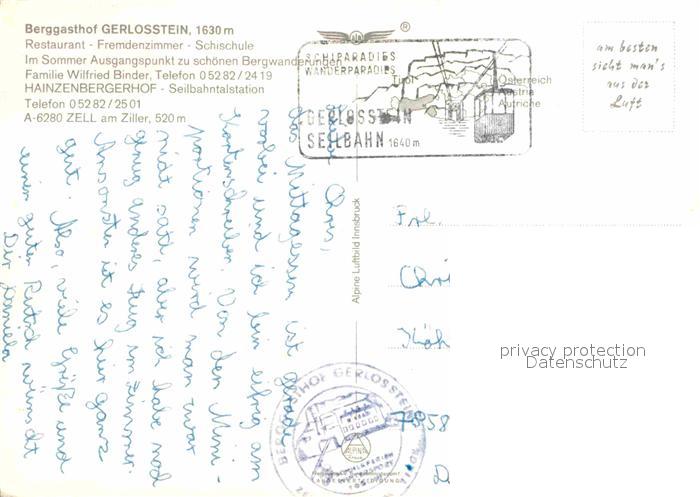 Berggasthof GERLOSSTEIN, 1630 m
Restaurant - Fremdenzimmer - Schischule
Im Sommer Ausgangspunkt zu schönen Bergwanderungen
Familie Wilfried Binder, Telefon 0 52 82 / 24 19
HAINZENBERGERHOF - Seilbahntalstation
Telefon 0 52 82 / 25 01
A-6280 ZELL am Ziller, 520 m
®
SCHIPARADIES
WANDERPARADIES
Tirol
Österreich
Austria
Autriche
GERLOSSTEIN
SEILBAHN 1640 m
am besten
sieht man's
aus der
Luft
Chris,
das Mittagessen ist gerade
vorbei und ich bin eifrig am
Kartenschreiben. Von den Mini-
Portionen wird man zwar
nicht satt, aber ich habe noch
genug anderes Zeug im Zimmer.
Ansonsten ist es hier ganz
gut. Also, viele Grüße und
einen guten Rutsch wünscht
Dir Daniela
Alpine Luftbild Innsbruck
Frl.
Chri
Köh
7958
D
privacy protection
Datenschutz
BERGGASTHOF GERLOSSTEIN
ALPINE